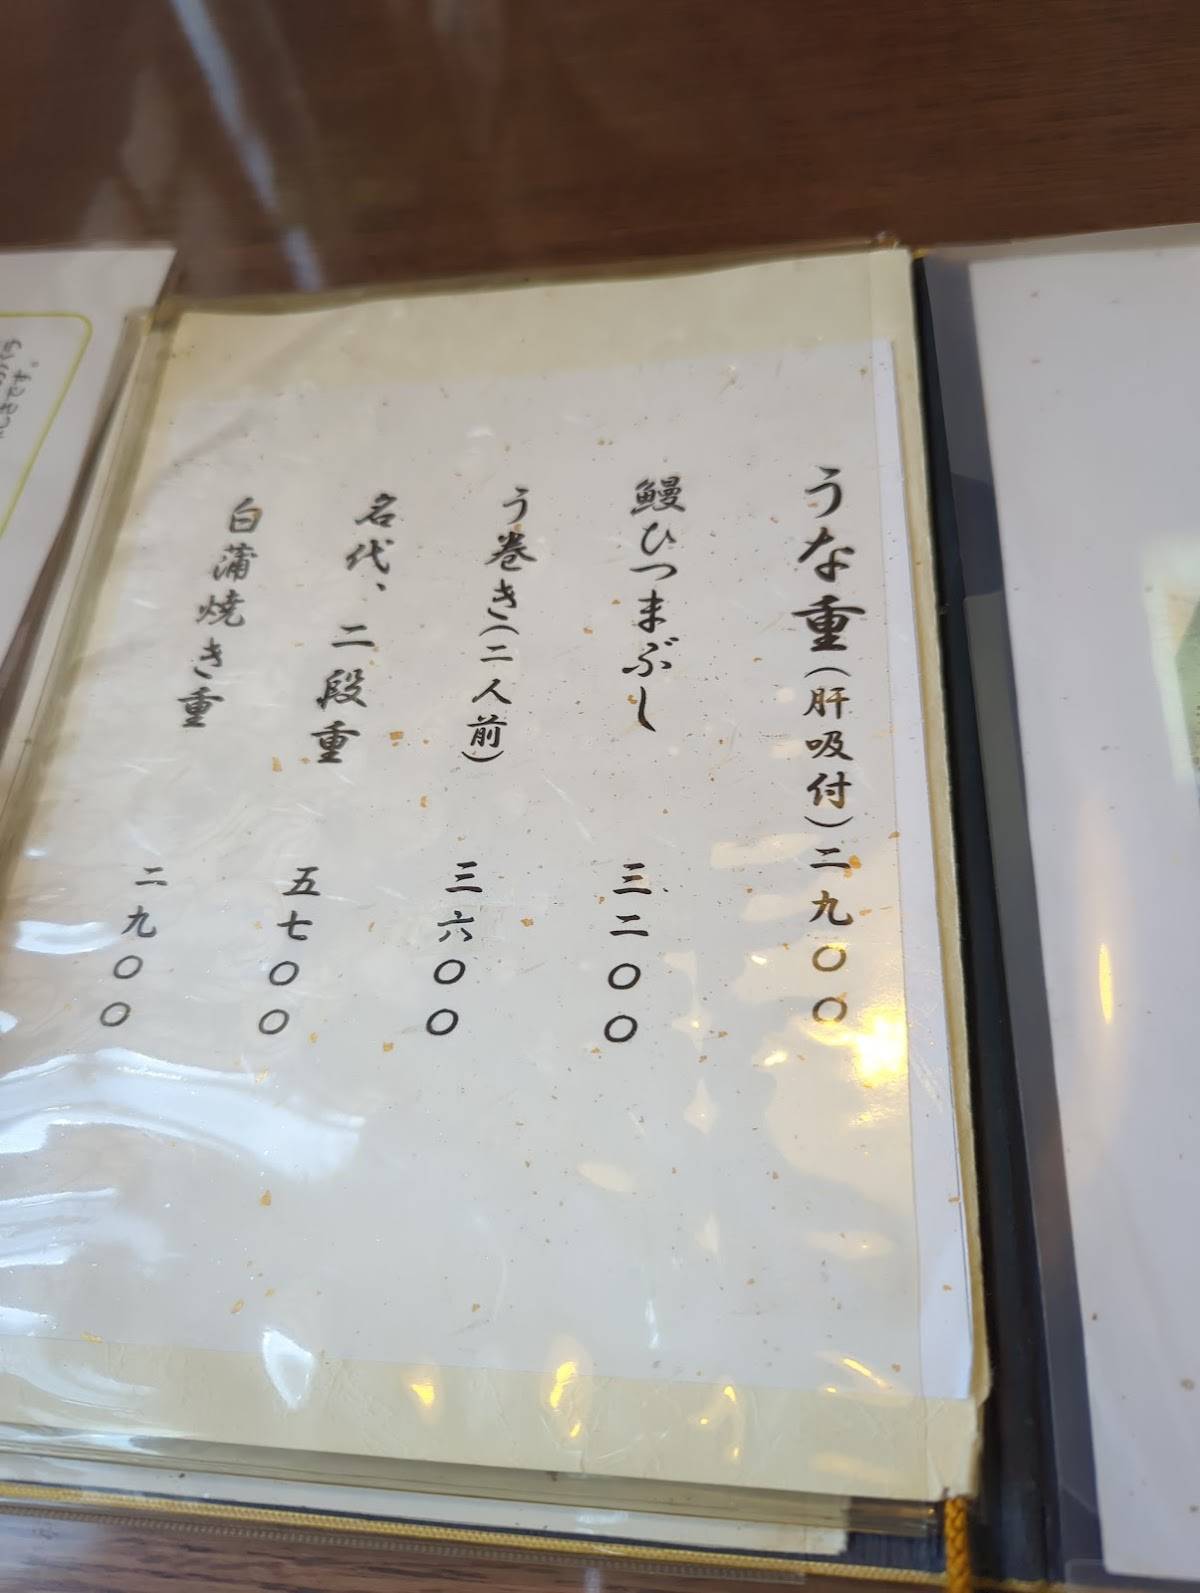 うな重(肝吸付)二九〇〇
鰻ひつまぶし 三二〇〇
う巻き(二人前) 三六〇〇
名代、二段重 五七〇〇
白蒲焼き重 二九〇〇
です。